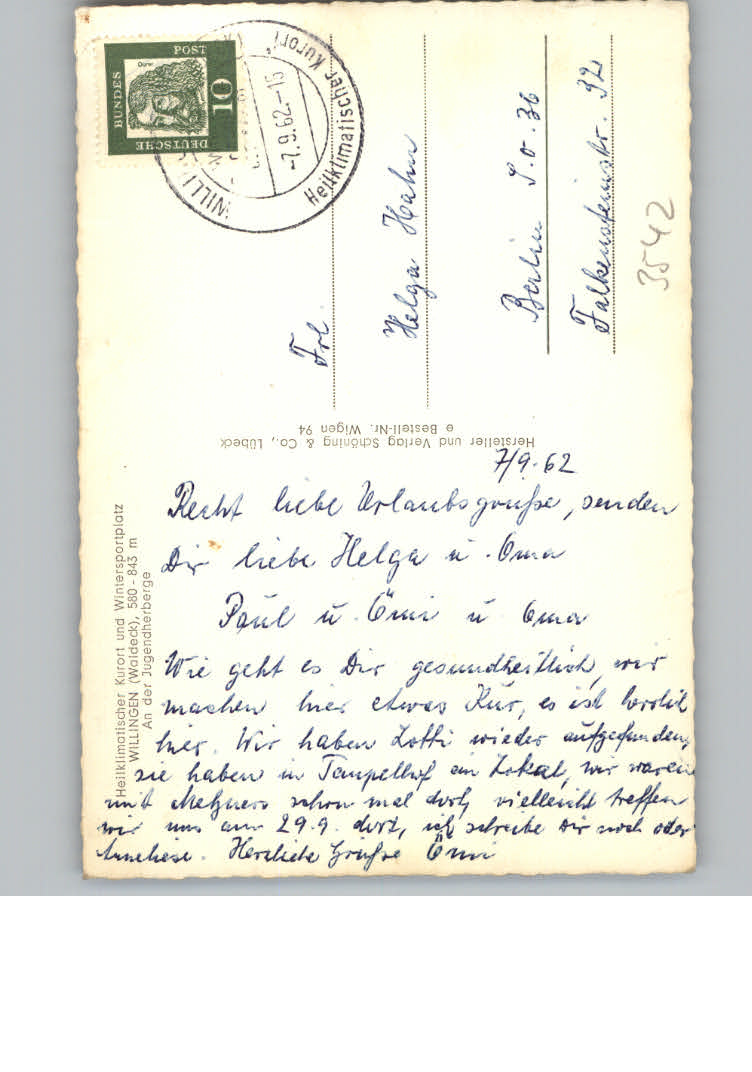 Heilklimatischer Kurort und Wintersportplatz
WILLINGEN (Waldeck), 580 - 843 m
An der Jugendherberge
Hersteller und Verlag Schöning & Co., Lübeck
Bestell-Nr. Wigen 94
DEUTSCHE
BUNDES
POST
10
Dürer
WILLI
-7.9.62.-16
Heilklimatischer Kurort
Frl.
Helga Hahn
Berlin S.O. 36
Falkensteinstr. 32
3542
7/9.62
Recht liebe Urlaubsgrüße, senden
Dir liebe Helga u. Oma
Paul u. Ömi u Oma
Wie geht es Dir gesundheitlich, wir
machen hier etwas Kur, es ist herrlich
hier. Wir haben Lotti wieder aufgefunden,
sie haben in Tempelhof ein Lokal, wir waren
mit Metzners schon mal dort, vielleicht treffen
wir uns am 29.9. dort, ich schreibe Dir noch oder
Anneliese. Herzliche Grüße Ömi